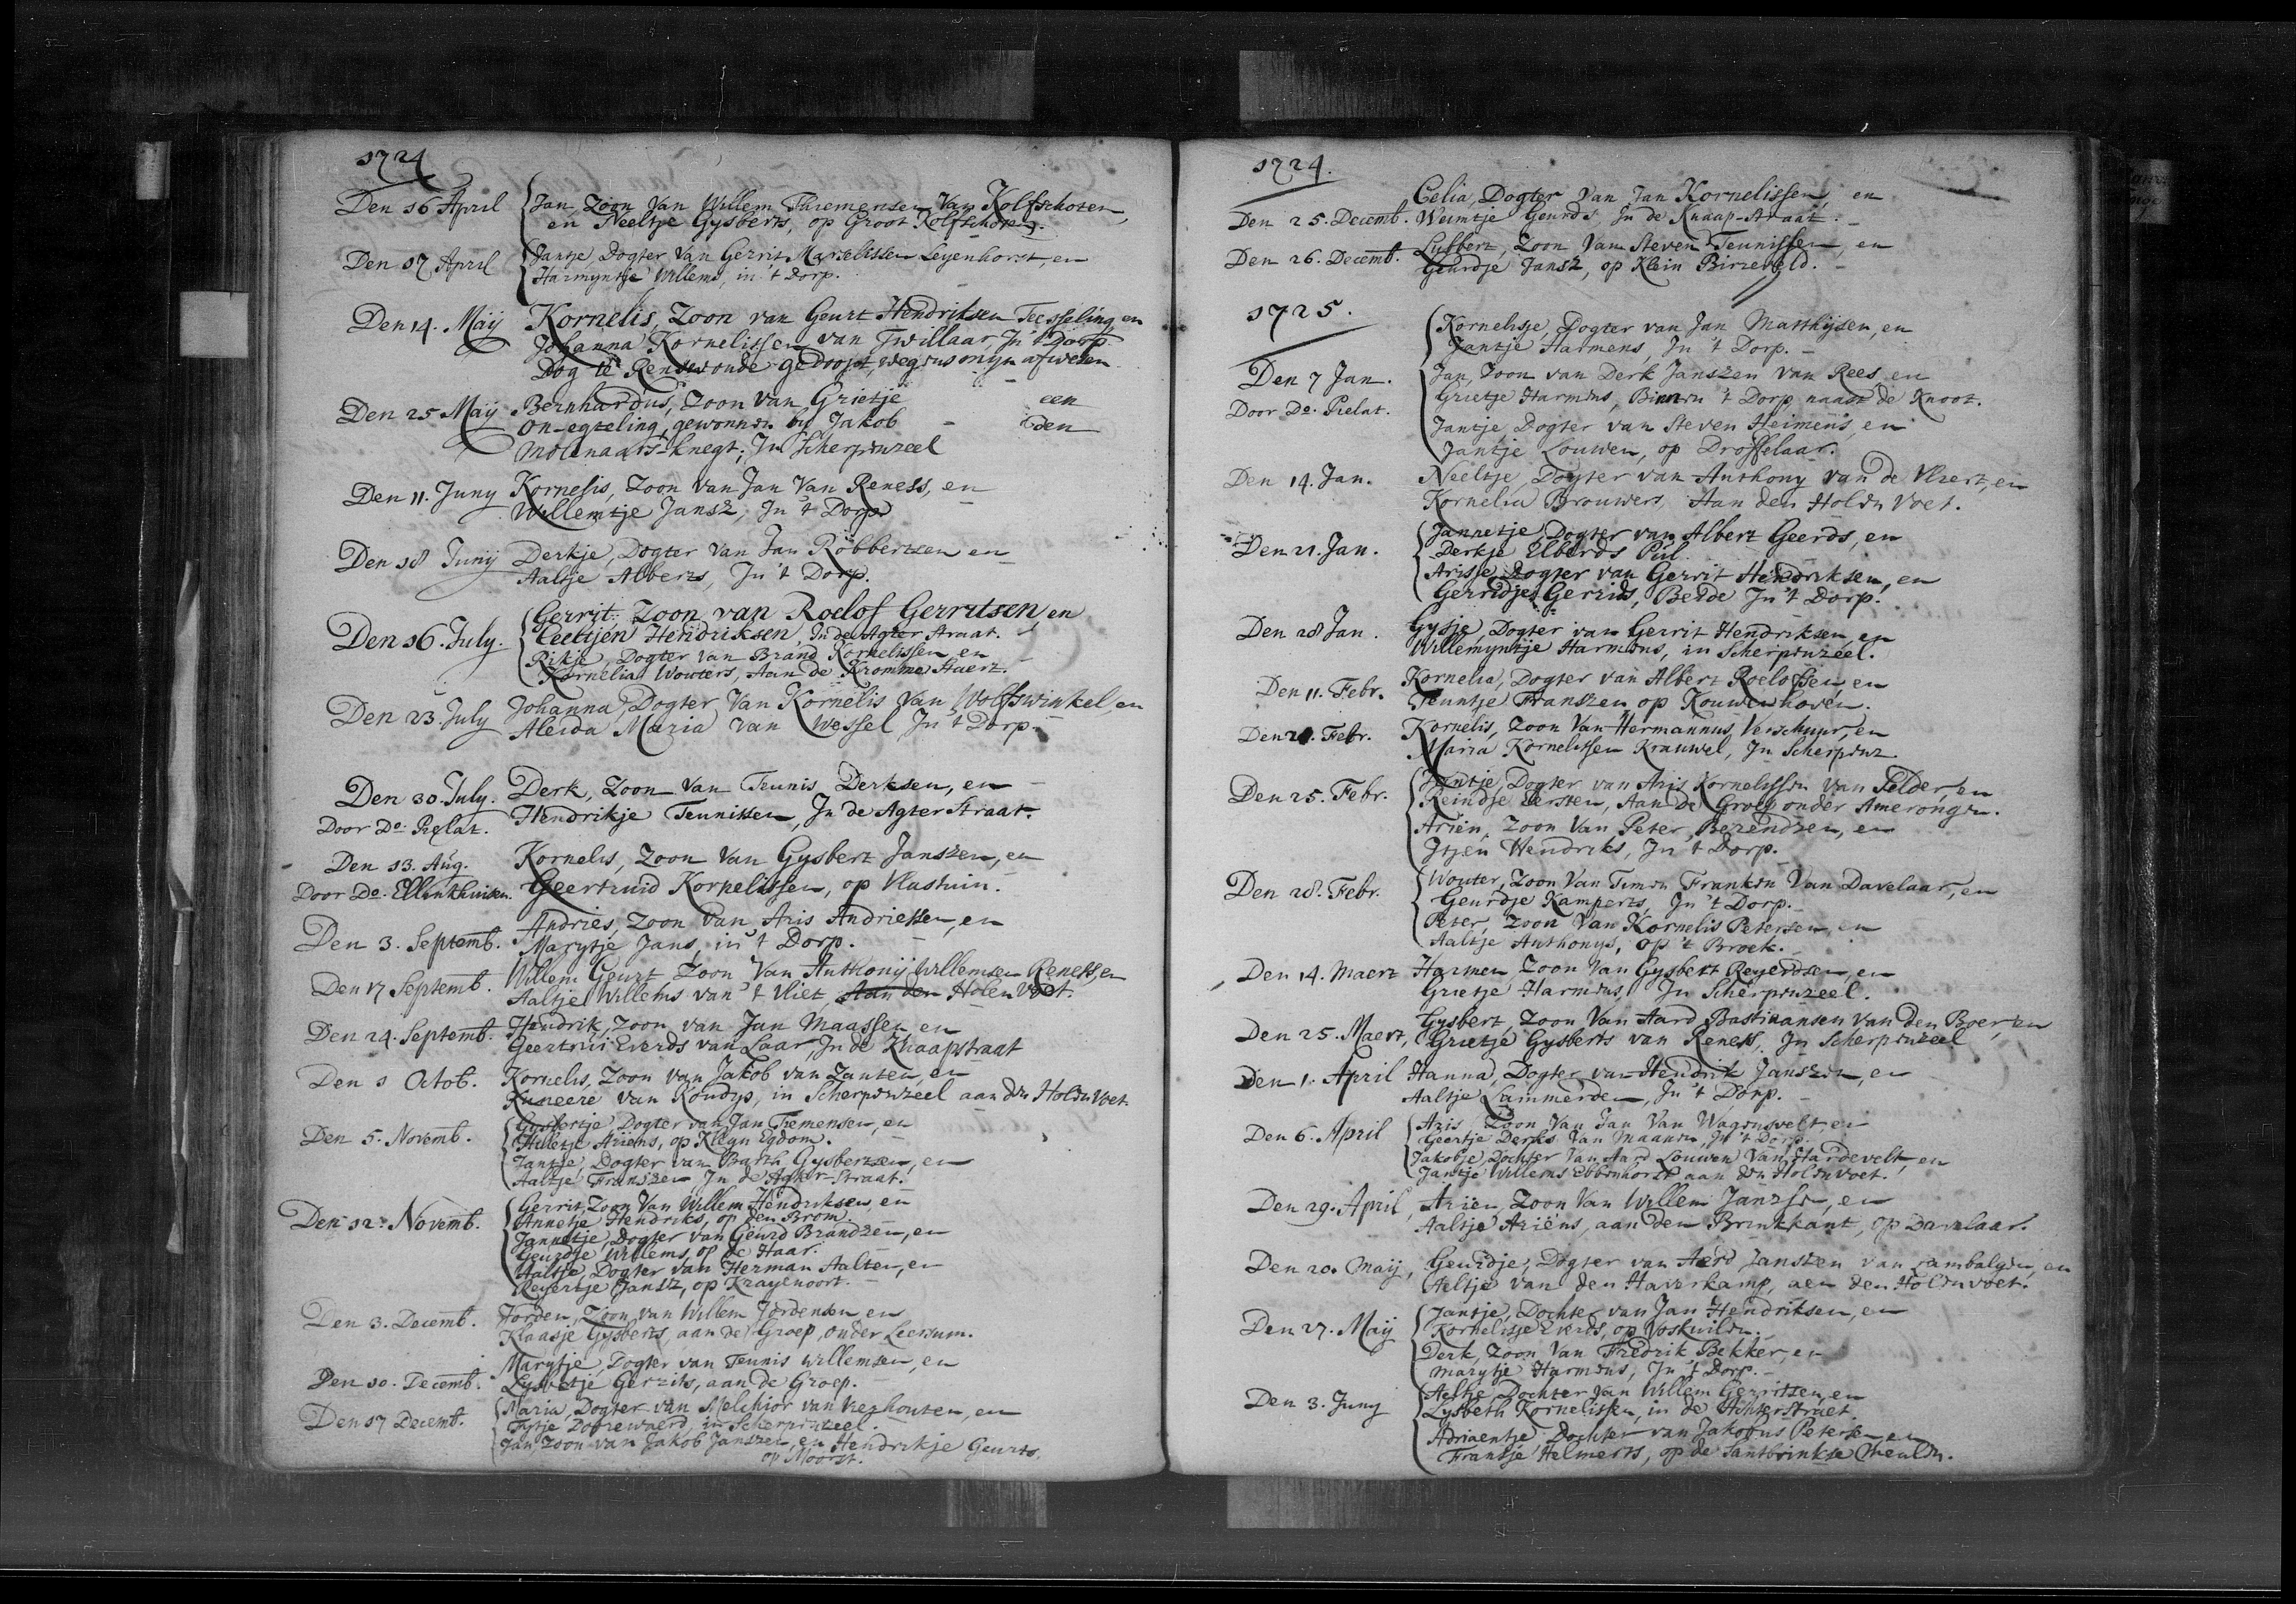 1724
Den 16 April Jan, Zoon Van Willem Thiemensen Van Kolfschoten,
en Neeltje Gysberts, op Groot Kolfschoten.
Den 17 April Jantje, Dogter Van Gerrit Marcelissen Leyenhorst, en
Harmyntje Willems, in 't Dorp.
Den 14. Maij Kornelis, Zoon van Geurt Hendriksen Teesseling, en
Johanna Kornelissen van Twillaar, In 't Dorp
Dog te Renswoude gedoopt, wegens myn afwesen
Den 25 Maij Bernhardus, Zoon van Grietje een
on-egteling, gewonnen by Jakob den
Molenaars-knegt; In Scherpenzeel
Den 11. Juny Kornelis, Zoon van Jan Van Reness, en
Willemtje Jansz, In 't Dorp
Den 18 Junij Derkje, Dogter Van Jan Robbertsen en
Aaltje Alberts, In 't Dorp.
Den 16. July. Gerrit, Zoon van Roelof Gerritsen, en
Ceeltjen Hendriksen, In de Agter straat.
Rikje, Dogter Van Brand Kornelissen en
Kornelia Wouters, Aan de Kromme Haert.
Den 23. July Johanna, Dogter Van Kornelis Van Wolfswinkel, en
Aleida Maria van Wessel, In 't Dorp.
Den 30. July. Derk, Zoon Van Teunis Derksen, en
Door Do: Pielat. Hendrikje Teunissen, In de Agter Straat.
Den 13. Aug. Kornelis, Zoon Van Gysbert Janszen, en
Door Do. Ellinkhuisen. Geertruid Kornelissen, op Vlastuin.
Den 3. Septemb. Andries, Zoon van Aris Andriessen, en
Marytje Jans, in 't Dorp.
Den 17 Septemb. Willem Geurt Zoon Van Anthonij Willemsen Reness, en
Aaltje Willems van 't Vliet Aan den Holen Voet.
Den 24. Septemb. Hendrik, Zoon van Jan Maassen en
Geertrui Everds van Laar, In de Knaapstraat
Den 1 Octob. Kornelis, Zoon van Jakob van Zanten, en
Kuneere van Koudys, in Scherpenzeel aan den Holen Voet.
Den 5. Novemb. Gysbertje Dogter van Jan Tiemensen, en
Hilletje Ariens, op Kleyn Egdom.
Jantje, Dogter van Barth Gysbertsen, en
Aaltje Franszen In de Agter-Straat.
Den 12. Novemb. Gerrit, Zoon Van Willem Hendriksen en
Annetje Hendriks, op den Brom.
Jannetje, Dogter van Geurd Brandzen, en
Geurdje Willems, op de Haar.
Aaltje, Dogter van Herman Aalten, en
Reyertje Jansz, op Krayenoort.
Den 3. Decemb. Jorden, Zoon van Willem Jordensen en
Klaasje Gysberts, aan de Groep, onder Leersum.
Den 10. Decemb. Marytje, Dogter van Teunis Willemsen, en
Lysbetje Gerrits, aan de Groep.
Den 17 Decemb. Maria, Dogter van Melchior van Uezhouten, en
Fytje Dorrewaerd in Scherpenzeel
Jan Zoon van Jakob Janszen, en Hendrikje Geurts,
op Moorst.
1724.
Celia, Dogter Van Jan Kornelissen, en
Den 25. Decemb. Weimtje Geurds In de Knaap-straat.
Den 26. Decemb. Lubbert, Zoon Van Steven Teunissen, en
Geurdje Jansz, op Klein Birreveld.
1725.
Kornelisje, Dogter van Jan Matthijsen, en
Jantje Harmens, In 't Dorp.
Den 7 Jan. Jan, Zoon van Derk Janszen Van Rees, en
Door Do. Pielat. Grietje Harmens, Binnen 't Dorp naast de Knoot.
Jantje, Dogter van Steven Heimens, en
Jantje Louwen, op Drosselaar.
Den 14. Jan. Neeltje, Dogter van Anthony Van de Vliert, en
Kornelia Brouwers, Aan den Holen Voet.
Den 21. Jan. Jannetje, Dogter van Albert Geerds, en
Derkje Elberds Pül
Arisje, Dogter van Gerrit Hendriksen, en
Gerridje Gerrids, Beide In 't Dorp.
Den 28 Jan. Gysje, Dogter van Gerrit Hendriksen, en
Willemyntje Harmens, in Scherpenzeel.
Den 11. Febr. Kornelia, Dogter van Albert Roelofsen, en
Teuntje Franszen op Kouwenhoven.
Den 21. Febr. Kornelis, Zoon Van Hermannus Verschuur, en
Maria Kornelissen Krauwel, In Scherpenz
Den 25. Febr. Jantje, Dogter van Aris Kornelissen Van Selder, en
Reindje Eersten, Aan de Groep onder Amerongen.
Arien, Zoon Van Peter Berendzen, en
Itjen Hendriks, In 't Dorp.
Den 28. Febr. Wouter, Zoon Van Timen Franken Van Davelaar, en
Geurdje Kamperts, In 't Dorp.
Peter, Zoon Van Kornelis Petersen en
Aaltje Anthonys, op 't Broek.
Den 14. Maert Harmen, Zoon Van Gysbert Reyerdsen, en
Grietje Harmens, In Scherpenzeel.
Den 25. Maert, Gysbert, Zoon Van Aard Bastiaansen Van den Boer, en
Grietje Gysberts van Reness, In Scherpenzeel
Den 1. April Hanna, Dogter van Hendrik Janszen, en
Aaltje Lammerden, In 't Dorp.
Den 6. April Aris, Zoon Van Jan Van Wagensvelt en
Geertje Derks Van Maanen, In 't Dorp.
Jakobje, Dochter Van Aard Louwen Van Hardevelt, en
Jantje Willems Ebbenhorst aan den Holenvoet.
Den 29. April, Arien, Zoon Van Willem Janzsen, en
Aaltje Ariens, aan den Brinkkant, op Davelaar.
Den 20. Maij, Geurdje, Dogter van Aerd Janszen van Lambalgen, en
Aeltje van den Haverkamp, aen den Holenvoet.
Den 27. Maij Jantje, Dochter van Jan Hendriksen, en
Kornelisje Everds, op Voskuilen.
Derk, Zoon Van Fredrik Bekker, en
Marytje Harmens, In 't Dorp.
Den 3. Juny Aeltje Dochter van Willem Gerritsen, en
Lysbeth Kornelissen, in de Achterstraet.
Adriaentje Dochter van Jakobus Petersen en
Fransje Helmerts, op de Santbrinkse Meulen.